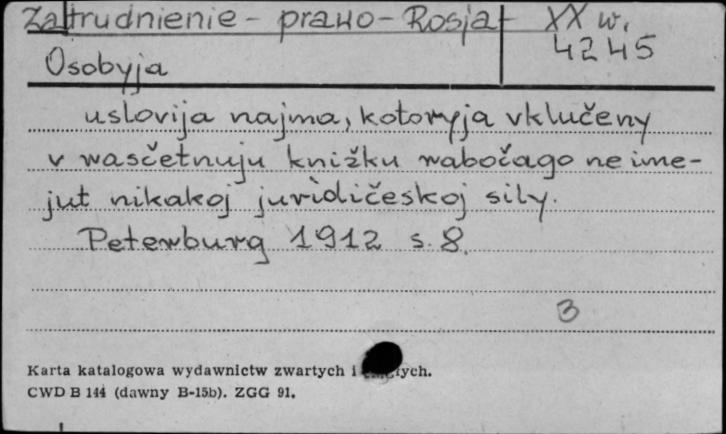 Zatrudnienie - prawo - Rosja - XX w.
4245
Osobyja
uslovija najma, kotoryja vključeny
v rasčetnuju knižku rabočago ne ime-
jut nikakoj juridičeskoj sily.
Peterburg 1912 s. 8.
B
Karta katalogowa wydawnictw zwartych i ciągłych.
CWD B 144 (dawny B-15b). ZGG 91.